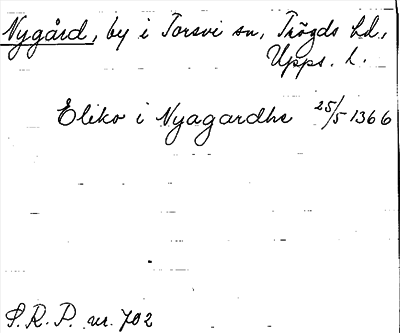 Nygård, by i Torsvi sn, Trögds hd.,
Upps. l.
Eliko i Nyagardhe 25/5 1366
S.R.P. nr. 702